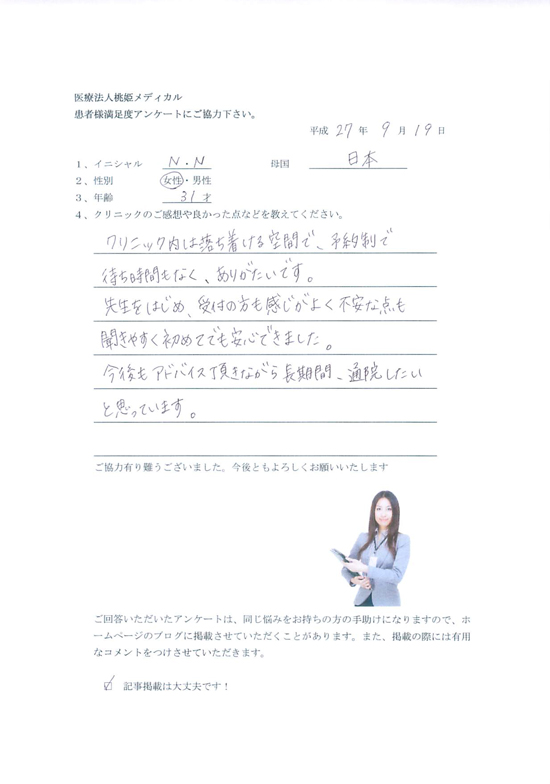 医療法人桃姫メディカル
患者様満足度アンケートにご協力下さい。
平成 27 年 9 月 19 日
1、イニシャル N.N 母国 日本
2、性別 女性・男性
3、年齢 31才
4、クリニックのご感想や良かった点などを教えてください。
クリニック内は落ち着ける空間で、予約制で
待ち時間もなく、ありがたいです。
先生をはじめ、受付の方も感じがよく不安な点も
聞きやすく初めてでも安心できました。
今後もアドバイス頂きながら長期間、通院したい
と思っています。
ご協力有り難うございました。今後ともよろしくお願いいたします
ご回答いただいたアンケートは、同じ悩みをお持ちの方の手助けになりますので、ホ
ームページのブログに掲載させていただくことがあります。また、掲載の際には有用
なコメントをつけさせていただきます。
☑ 記事掲載は大丈夫です！